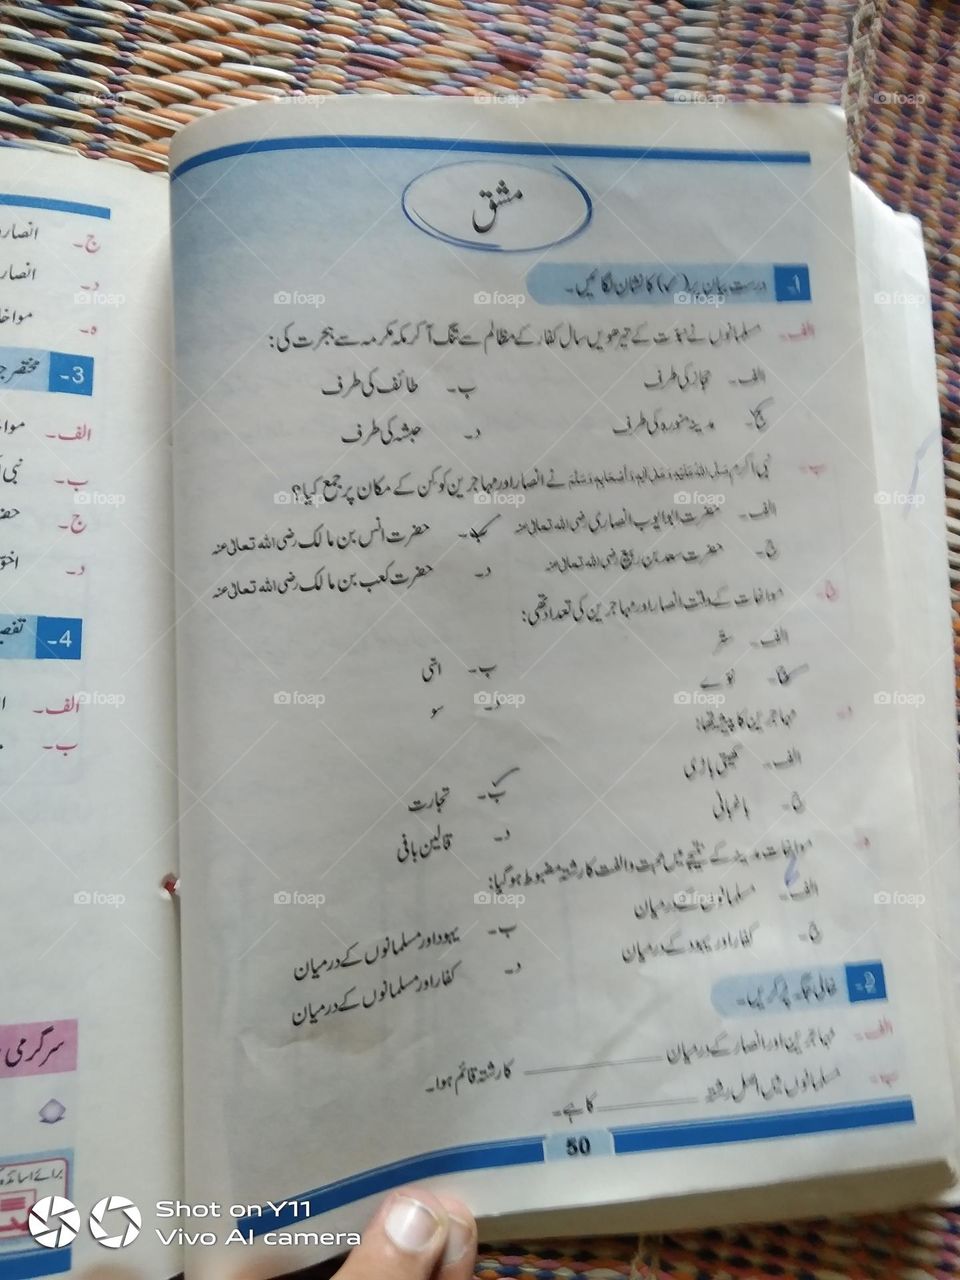 مشق
1۔ درست بیان پر (✓) کا نشان لگائیں۔
الف۔ مسلمانوں نے نبوت کے تیرھویں سال کفار کے مظالم سے تنگ آ کر مکہ مکرمہ سے ہجرت کی:
الف۔ حجاز کی طرف ب۔ طائف کی طرف
ج۔ مدینہ منورہ کی طرف د۔ حبشہ کی طرف
ب۔ نبی اکرم نے انصار اور مہاجرین کو کن کے مکان پر جمع کیا؟
الف۔ حضرت ابو ایوب انصاری رضی اللہ تعالیٰ عنہ ب۔ حضرت انس بن مالک رضی اللہ تعالیٰ عنہ
ج۔ حضرت سعد بن ربیع رضی اللہ تعالیٰ عنہ د۔ حضرت کعب بن مالک رضی اللہ تعالیٰ عنہ
ج۔ مواخات کے وقت انصار اور مہاجرین کی تعداد تھی:
الف۔ ستر ب۔ اسّی
ج۔ نوے د۔ سو
د۔ مہاجرین کا پیشہ تھا:
الف۔ کھیتی باڑی ب۔ تجارت
ج۔ باغبانی د۔ قالین بافی
ہ۔ مواخات مدینہ کے نتیجے میں محبت و الفت کا رشتہ مضبوط ہو گیا:
الف۔ مسلمانوں کے درمیان ب۔ یہود اور مسلمانوں کے درمیان
ج۔ کفار اور یہود کے درمیان د۔ کفار اور مسلمانوں کے درمیان
2۔ خالی جگہ پر کریں۔
الف۔ مہاجرین اور انصار کے درمیان ________ کا رشتہ قائم ہوا۔
ب۔ مسلمانوں میں اصل رشتہ ________ کا ہے۔
50
ج۔ انصار
د۔ انصار
ہ۔
3۔ مختصر
الف۔
ب۔ نبی
ج۔
د۔
4۔
الف۔
ب۔
سرگرمی
برائے اساتذہ
Shot on Y11
Vivo AI camera
foap